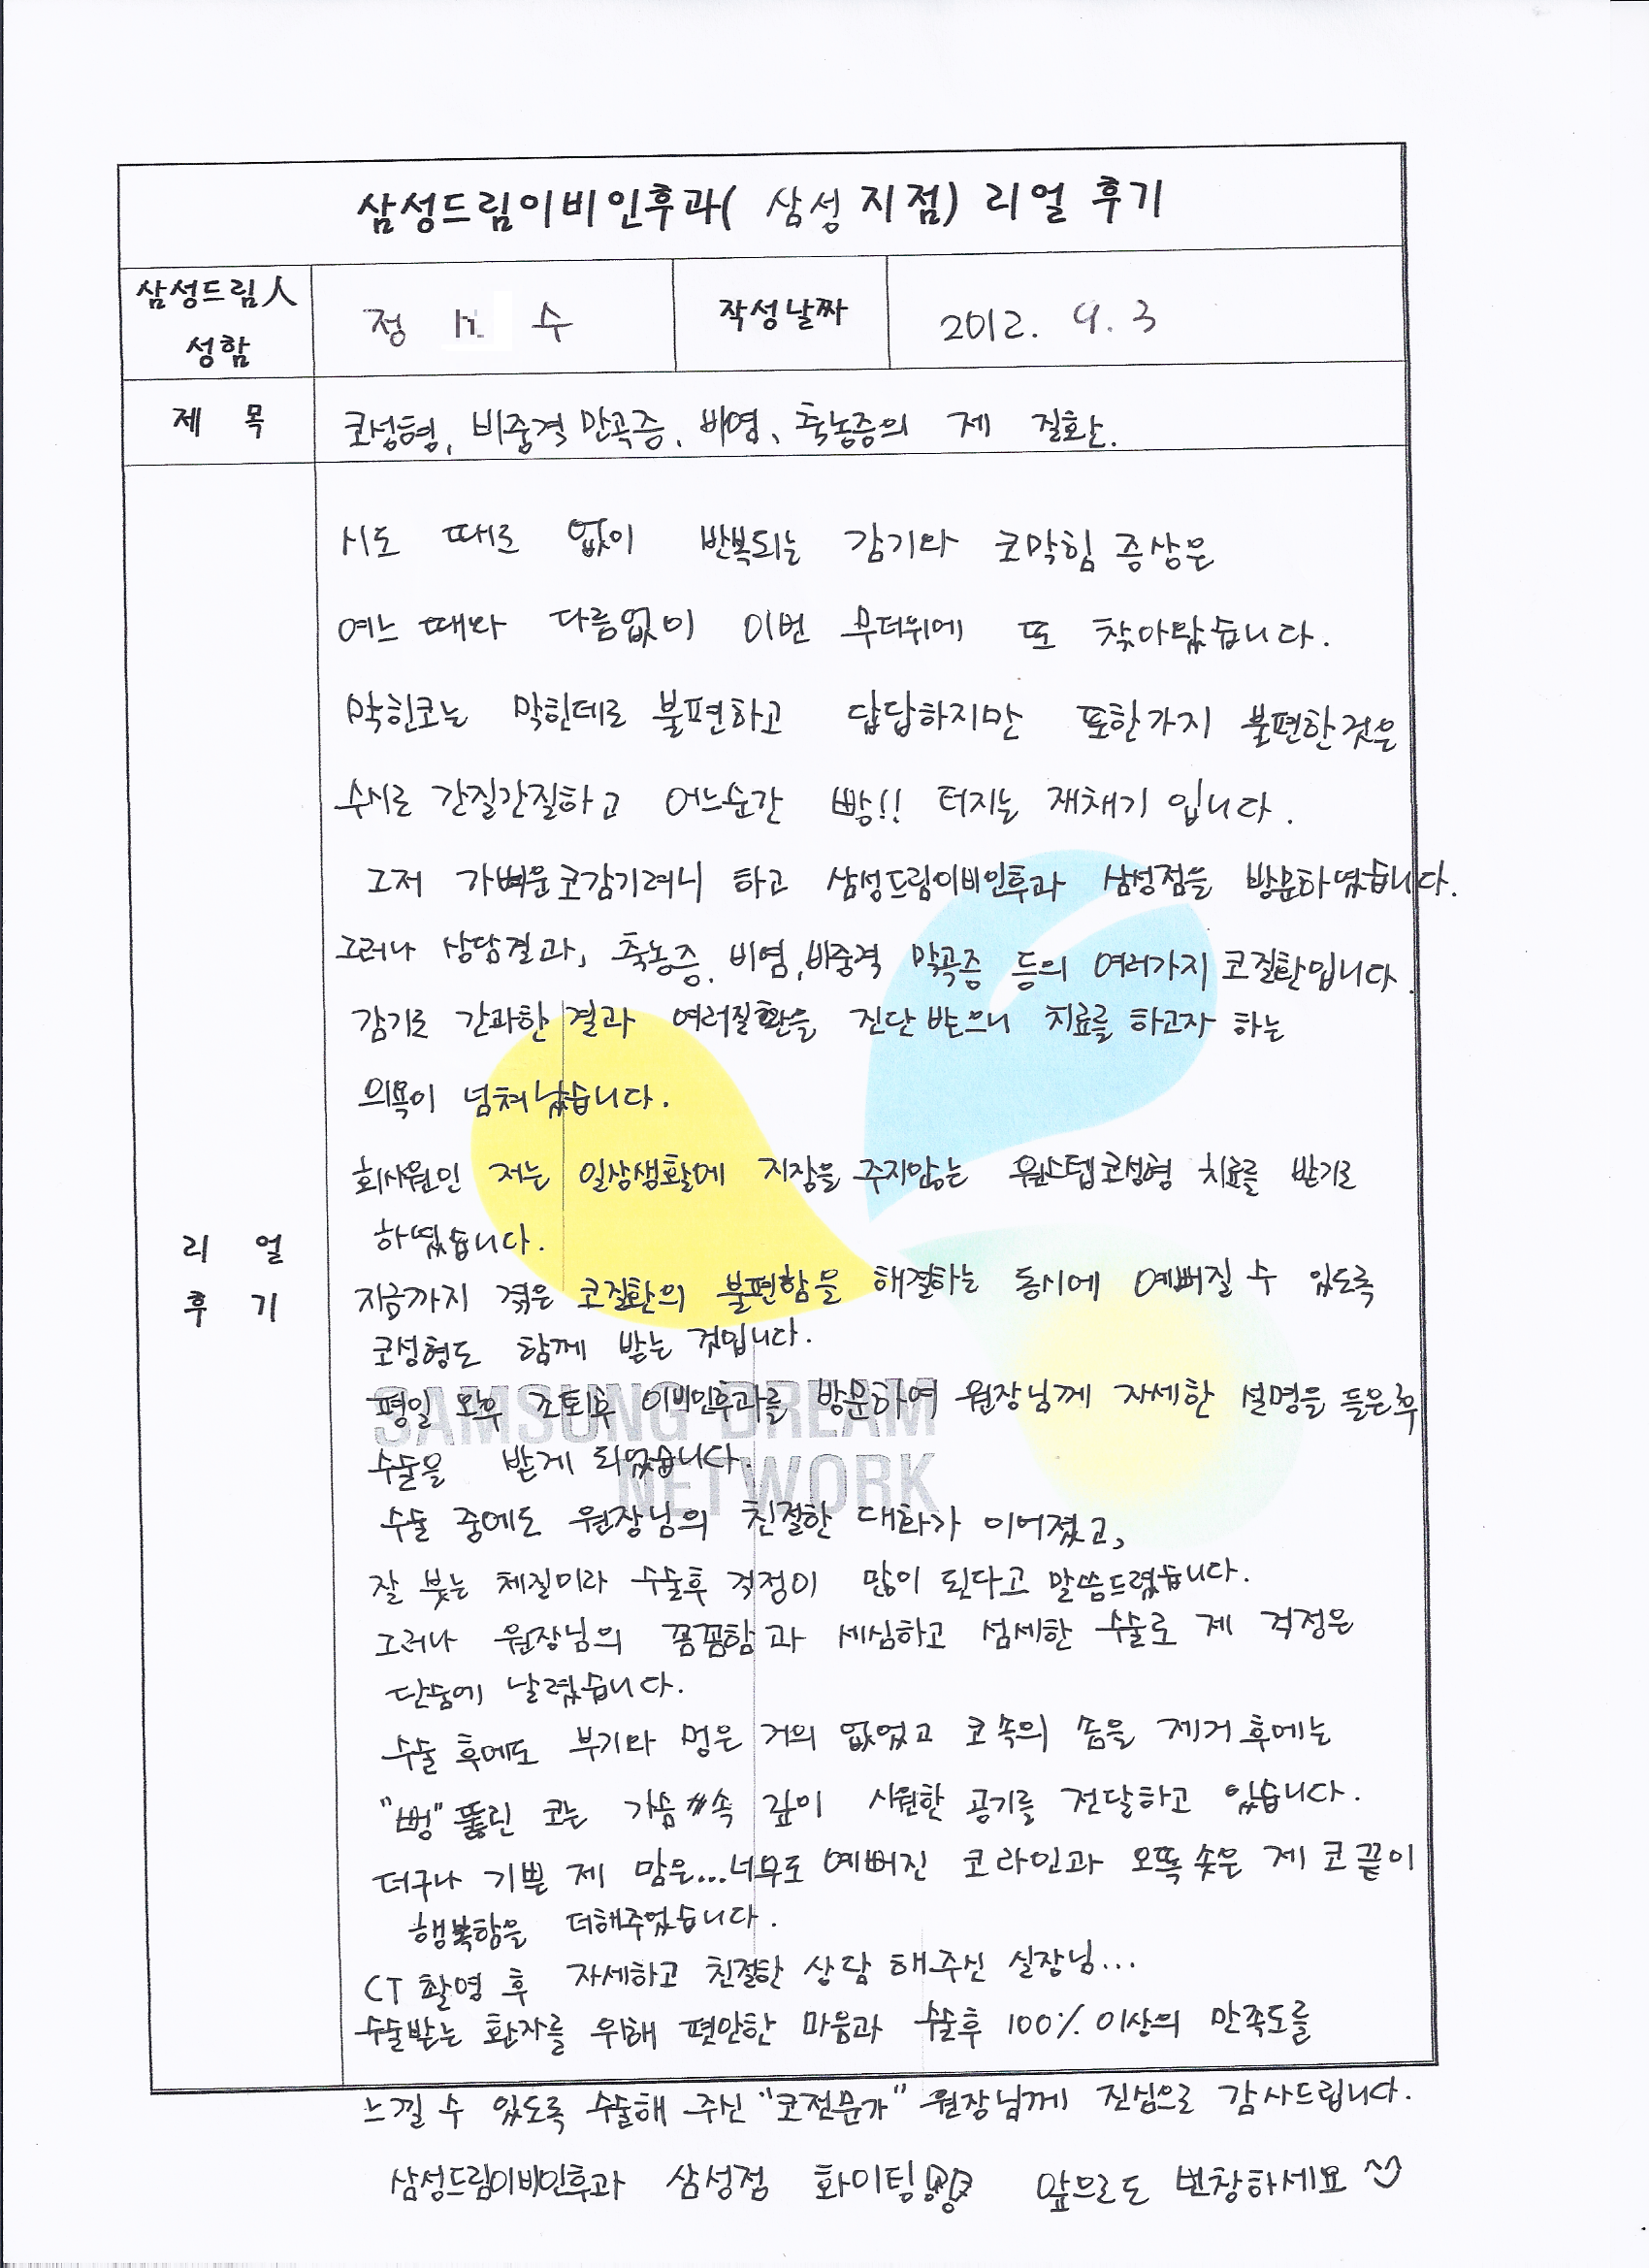 삼성드림이비인후과( 삼성 지점) 리얼 후기
삼성드림人
성함
정 수
작성날짜
2012. 9. 3
제 목
코성형, 비중격 만곡증, 비염, 축농증의 제 질환.
시도 때로 없이 반복되는 감기와 코막힘 증상은
여느 때와 다름없이 이번 무더위에 또 찾아왔습니다.
막힌코는 막힌데로 불편하고 답답하지만 또한가지 불편한것은
수시로 간질간질하고 어느순간 빵!! 터지는 재채기 입니다.
그저 가벼운 코감기려니 하고 삼성드림이비인후과 삼성점을 방문하였습니다.
그러나 상담결과, 축농증, 비염, 비중격 만곡증 등의 여러가지 코질환입니다.
감기로 간과한 결과 여러질환을 진단 받으니 치료를 하고자 하는
의욕이 넘쳐 났습니다.
회사원인 저는 일상생활에 지장을 주지않는 원스텝코성형 치료를 받기로
하였습니다.
지금까지 겪은 코질환의 불편함을 해결하는 동시에 예뻐질 수 있도록
코성형도 함께 받는 것입니다.
평일 오후 조퇴후 이비인후과를 방문하여 원장님께 자세한 설명을 들은후
수술을 받게 되었습니다.
SAMSUNG DREAM
NETWORK
수술 중에도 원장님의 친절한 대화가 이어졌고,
잘 붓는 체질이라 수술후 걱정이 많이 된다고 말씀드렸습니다.
그러나 원장님의 꼼꼼함과 세심하고 섬세한 수술로 제 걱정은
단숨에 날렸습니다.
리 얼
후 기
수술 후에도 부기와 멍은 거의 없었고 코 속의 솜을 제거 후에는
"뻥" 뚫린 코는 가슴 속 깊이 시원한 공기를 전달하고 있습니다.
더구나 기쁠 제 맘은...너무도 예뻐진 코라인과 오똑 솟은 제 코 끝이
행복함을 더해주었습니다.
CT 촬영 후 자세하고 친절한 상담 해주신 실장님...
수술받는 환자를 위해 편안한 마음과 수술후 100% 이상의 만족도를
느낄 수 있도록 수술해 주신 "코전문가" 원장님께 진심으로 감사드립니다.
삼성드림이비인후과 삼성점 화이팅!! 앞으로도 번창하세요 ^^